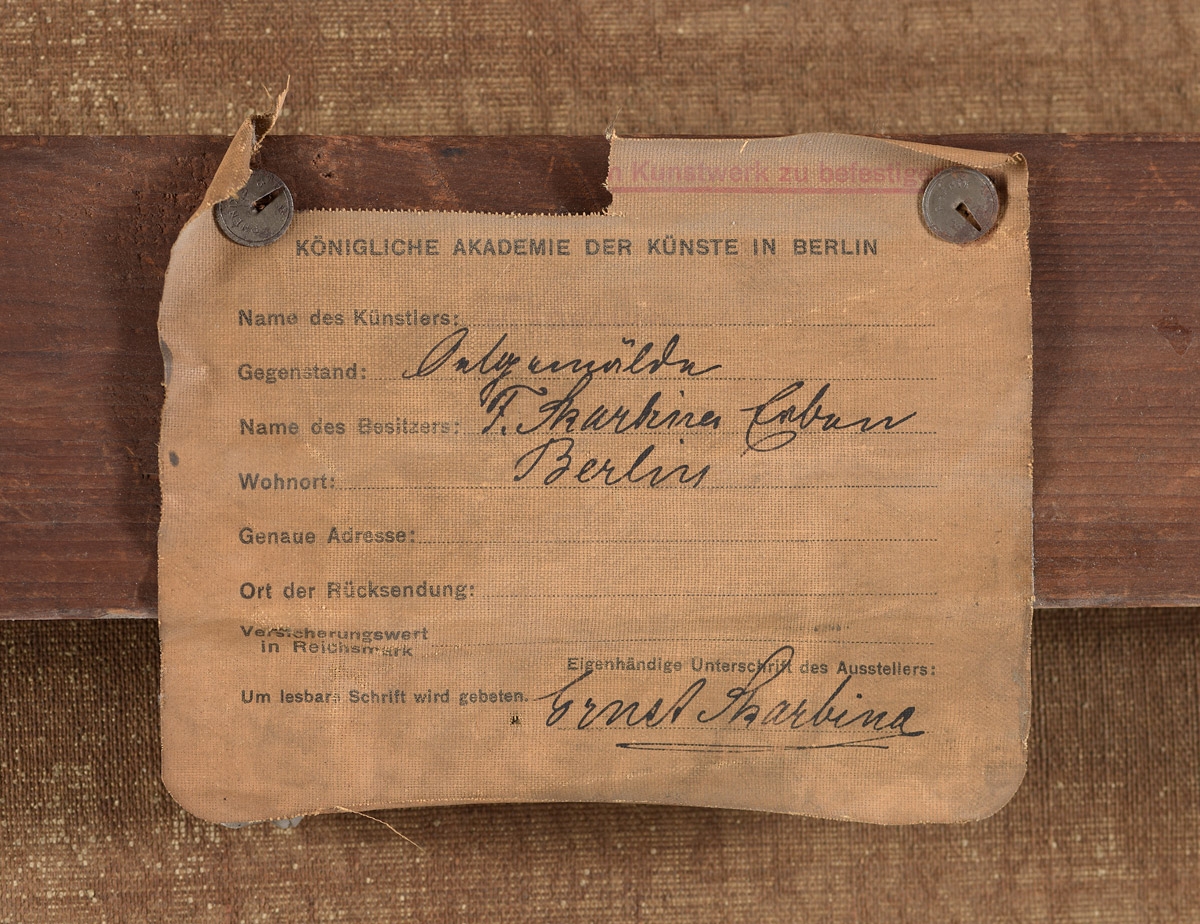 Kunstwerk zu befestigen
KÖNIGLICHE AKADEMIE DER KÜNSTE IN BERLIN
Name des Künstlers:
Gegenstand: Oelgemälde
Name des Besitzers: F. Skarbina Erben
Wohnort: Berlin
Genaue Adresse:
Ort der Rücksendung:
Versicherungswert
in Reichsmark
Eigenhändige Unterschrift des Ausstellers:
Um lesbare Schrift wird gebeten.
Ernst Skarbina